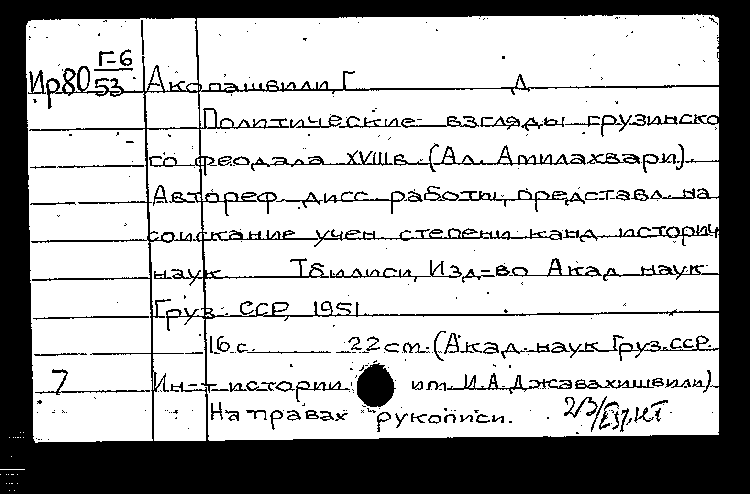 Г-6
Ир80 53 Акопашвили, Г Д
Политические взгляды грузинско
го феодала XVIII в. (Ал. Амилахвари).
Автореф. дисс. работы, представл. на
соискание учен. степени канд. историч
наук Тбилиси, Изд-во Акад. наук
Груз. ССР, 1951
16 с. 22 см. (Акад. наук Груз. ССР.
7 Ин-т истории им. И.А. Джавахишвили)
На правах рукописи.
2/3/